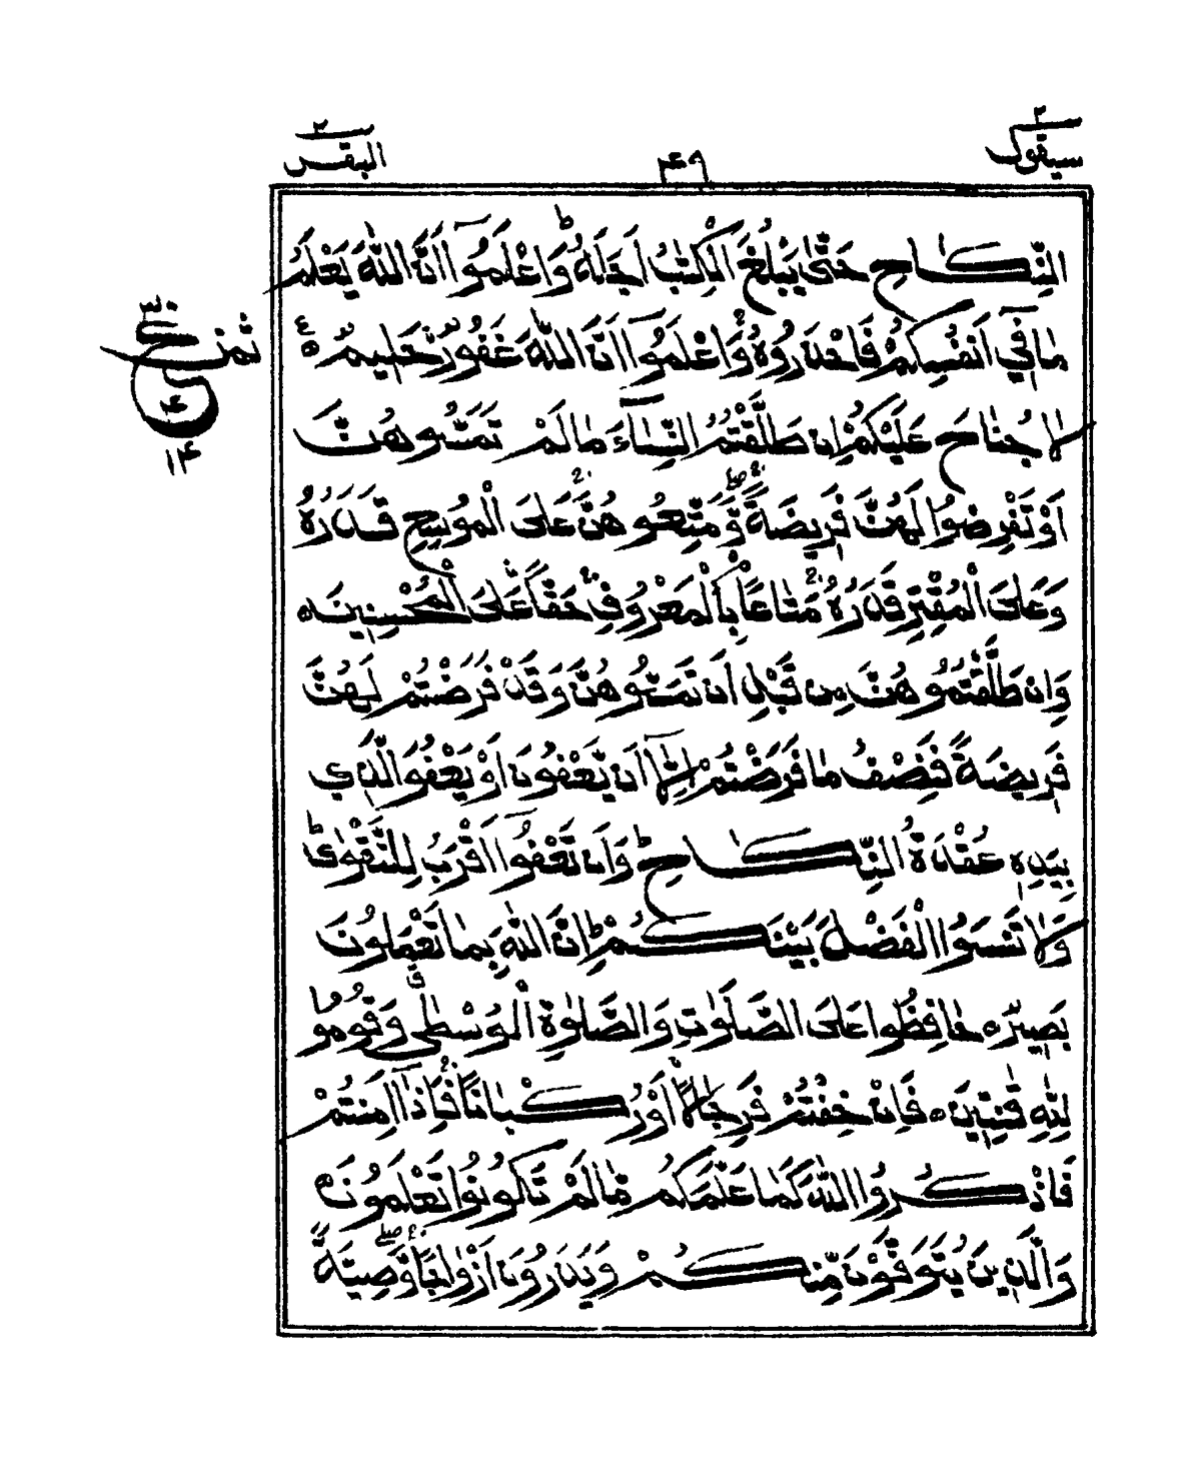 سيقول ٢
٤٩
البقرة ٢
النِّكَاحِ حَتّٰى يَبْلُغَ الْكِتٰبُ اَجَلَهٗ ؕ وَاعْلَمُوْٓا اَنَّ اللّٰهَ يَعْلَمُ
مَا فِيْٓ اَنْفُسِكُمْ فَاحْذَرُوْهُ ۚ وَاعْلَمُوْٓا اَنَّ اللّٰهَ غَفُوْرٌ حَلِيْمٌ ۝ ع
لَا جُنَاحَ عَلَيْكُمْ اِنْ طَلَّقْتُمُ النِّسَآءَ مَا لَمْ تَمَسُّوْهُنَّ
اَوْ تَفْرِضُوْا لَهُنَّ فَرِيْضَةً ۖۚ وَّمَتِّعُوْهُنَّ ۚ عَلَى الْمُوْسِعِ قَدَرُهٗ
وَعَلَى الْمُقْتِرِ قَدَرُهٗ ۚ مَتَاعًا بِالْمَعْرُوْفِ ۚ حَقًّا عَلَى الْمُحْسِنِيْنَ ۝
وَاِنْ طَلَّقْتُمُوْهُنَّ مِنْ قَبْلِ اَنْ تَمَسُّوْهُنَّ وَقَدْ فَرَضْتُمْ لَهُنَّ
فَرِيْضَةً فَنِصْفُ مَا فَرَضْتُمْ اِلَّآ اَنْ يَّعْفُوْنَ اَوْ يَعْفُوَا الَّذِيْ
بِيَدِهٖ عُقْدَةُ النِّكَاحِ ؕ وَاَنْ تَعْفُوْٓا اَقْرَبُ لِلتَّقْوٰى ؕ
وَلَا تَنْسَوُا الْفَضْلَ بَيْنَكُمْ ؕ اِنَّ اللّٰهَ بِمَا تَعْمَلُوْنَ
بَصِيْرٌ ۝ حَافِظُوْا عَلَى الصَّلَوٰتِ وَالصَّلٰوةِ الْوُسْطٰى ۗ وَقُوْمُوْا
لِلّٰهِ قٰنِتِيْنَ ۝ فَاِنْ خِفْتُمْ فَرِجَالًا اَوْ رُكْبَانًا ۚ فَاِذَآ اَمِنْتُمْ
فَاذْكُرُوا اللّٰهَ كَمَا عَلَّمَكُمْ مَّا لَمْ تَكُوْنُوْا تَعْلَمُوْنَ ۝
وَالَّذِيْنَ يُتَوَفَّوْنَ مِنْكُمْ وَيَذَرُوْنَ اَزْوَاجًا ۖۚ وَّصِيَّةً
ثمن
٣٠
ع
٤
١٤